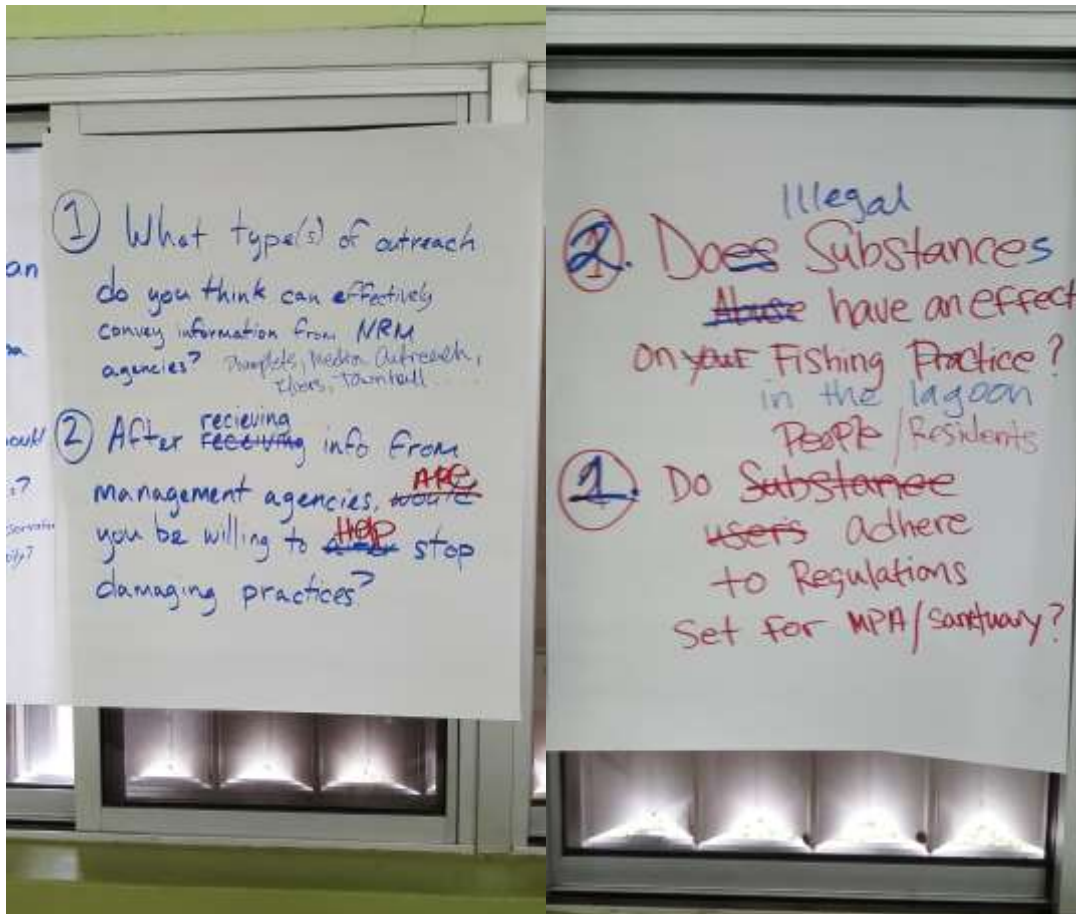 an
1 What type(s) of outreach
do you think can effectively
convey information from NRM
agencies? Pamplets, Media Outreach,
Townhall....
2 After recieving
receiving info from
management agencies, ARE would
you be willing to Help stop
damaging practices?
Illegal
2. Does Substances
Abuse have an effect
on your Fishing Practice?
in the lagoon
People/Residents
1. Do Substance
users adhere
to Regulations
Set for MPA/Sanctuary?